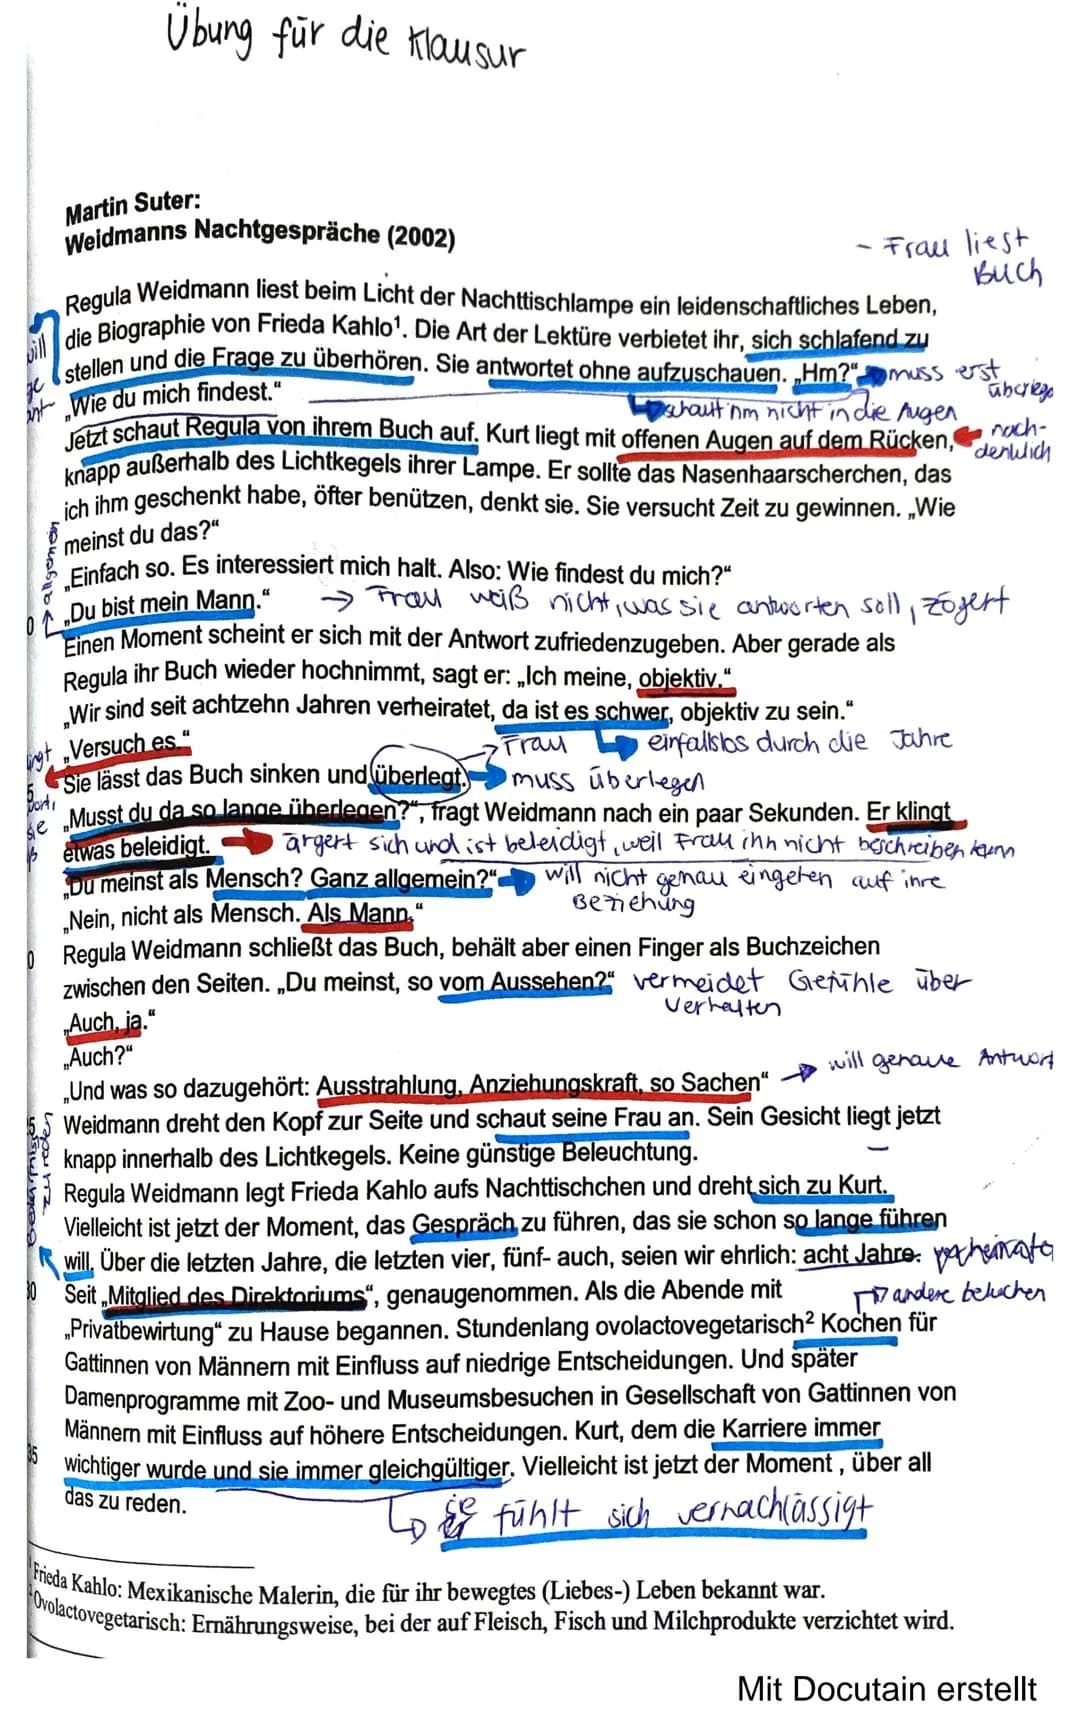 Übung für die Klausur
Martin Suter:
Weidmanns Nachtgespräche (2002)
- Frau liest
Buch
Regula Weidmann liest beim Licht der Nachttischlampe ein leidenschaftliches Leben,
die Biographie von Frieda Kahlo¹. Die Art der Lektüre verbietet ihr, sich schlafend zu
stellen und die Frage zu überhören. Sie antwortet ohne aufzuschauen. „Hm?“ muss erst
überlegen
„Wie du mich findest.“
schaut ihm nicht in die Augen
Jetzt schaut Regula von ihrem Buch auf. Kurt liegt mit offenen Augen auf dem Rücken, nach-
denklich
knapp außerhalb des Lichtkegels ihrer Lampe. Er sollte das Nasenhaarscherchen, das
ich ihm geschenkt habe, öfter benützen, denkt sie. Sie versucht Zeit zu gewinnen. „Wie
meinst du das?“
allgemein
„Einfach so. Es interessiert mich halt. Also: Wie findest du mich?“
0 „Du bist mein Mann.“ → Frau weiß nicht, was sie antworten soll, zögert
Einen Moment scheint er sich mit der Antwort zufriedenzugeben. Aber gerade als
Regula ihr Buch wieder hochnimmt, sagt er: „Ich meine, objektiv.“
„Wir sind seit achtzehn Jahren verheiratet, da ist es schwer, objektiv zu sein.“
„Versuch es.“ → Frau einfallslos durch die Jahre
5 Sie lässt das Buch sinken und überlegt. muss überlegen
„Musst du da so lange überlegen?“, fragt Weidmann nach ein paar Sekunden. Er klingt
etwas beleidigt. ärgert sich und ist beleidigt, weil Frau ihn nicht beschreiben kann
„Du meinst als Mensch? Ganz allgemein?“ will nicht genau eingehen auf ihre
Beziehung
„Nein, nicht als Mensch. Als Mann.“
0 Regula Weidmann schließt das Buch, behält aber einen Finger als Buchzeichen
zwischen den Seiten. „Du meinst, so vom Aussehen?“ vermeidet Gefühle über
Verhalten
„Auch, ja.“
„Auch?“
„Und was so dazugehört: Ausstrahlung, Anziehungskraft, so Sachen“ → will genaue Antwort
5 Weidmann dreht den Kopf zur Seite und schaut seine Frau an. Sein Gesicht liegt jetzt
knapp innerhalb des Lichtkegels. Keine günstige Beleuchtung.
zu reden
Regula Weidmann legt Frieda Kahlo aufs Nachttischchen und dreht sich zu Kurt.
Vielleicht ist jetzt der Moment, das Gespräch zu führen, das sie schon so lange führen
will. Über die letzten Jahre, die letzten vier, fünf- auch, seien wir ehrlich: acht Jahre.
30 Seit „Mitglied des Direktoriums“, genaugenommen. Als die Abende mit andere
„Privatbewirtung“ zu Hause begannen. Stundenlang ovolactovegetarisch² Kochen für
Gattinnen von Männern mit Einfluss auf niedrige Entscheidungen. Und später
Damenprogramme mit Zoo- und Museumsbesuchen in Gesellschaft von Gattinnen von
Männern mit Einfluss auf höhere Entscheidungen. Kurt, dem die Karriere immer
35 wichtiger wurde und sie immer gleichgültiger. Vielleicht ist jetzt der Moment , über all
das zu reden.
sie fühlt sich vernachlässigt
¹ Frieda Kahlo: Mexikanische Malerin, die für ihr bewegtes (Liebes-) Leben bekannt war.
² Ovolactovegetarisch: Ernährungsweise, bei der auf Fleisch, Fisch und Milchprodukte verzichtet wird.
Mit Docutain erstellt